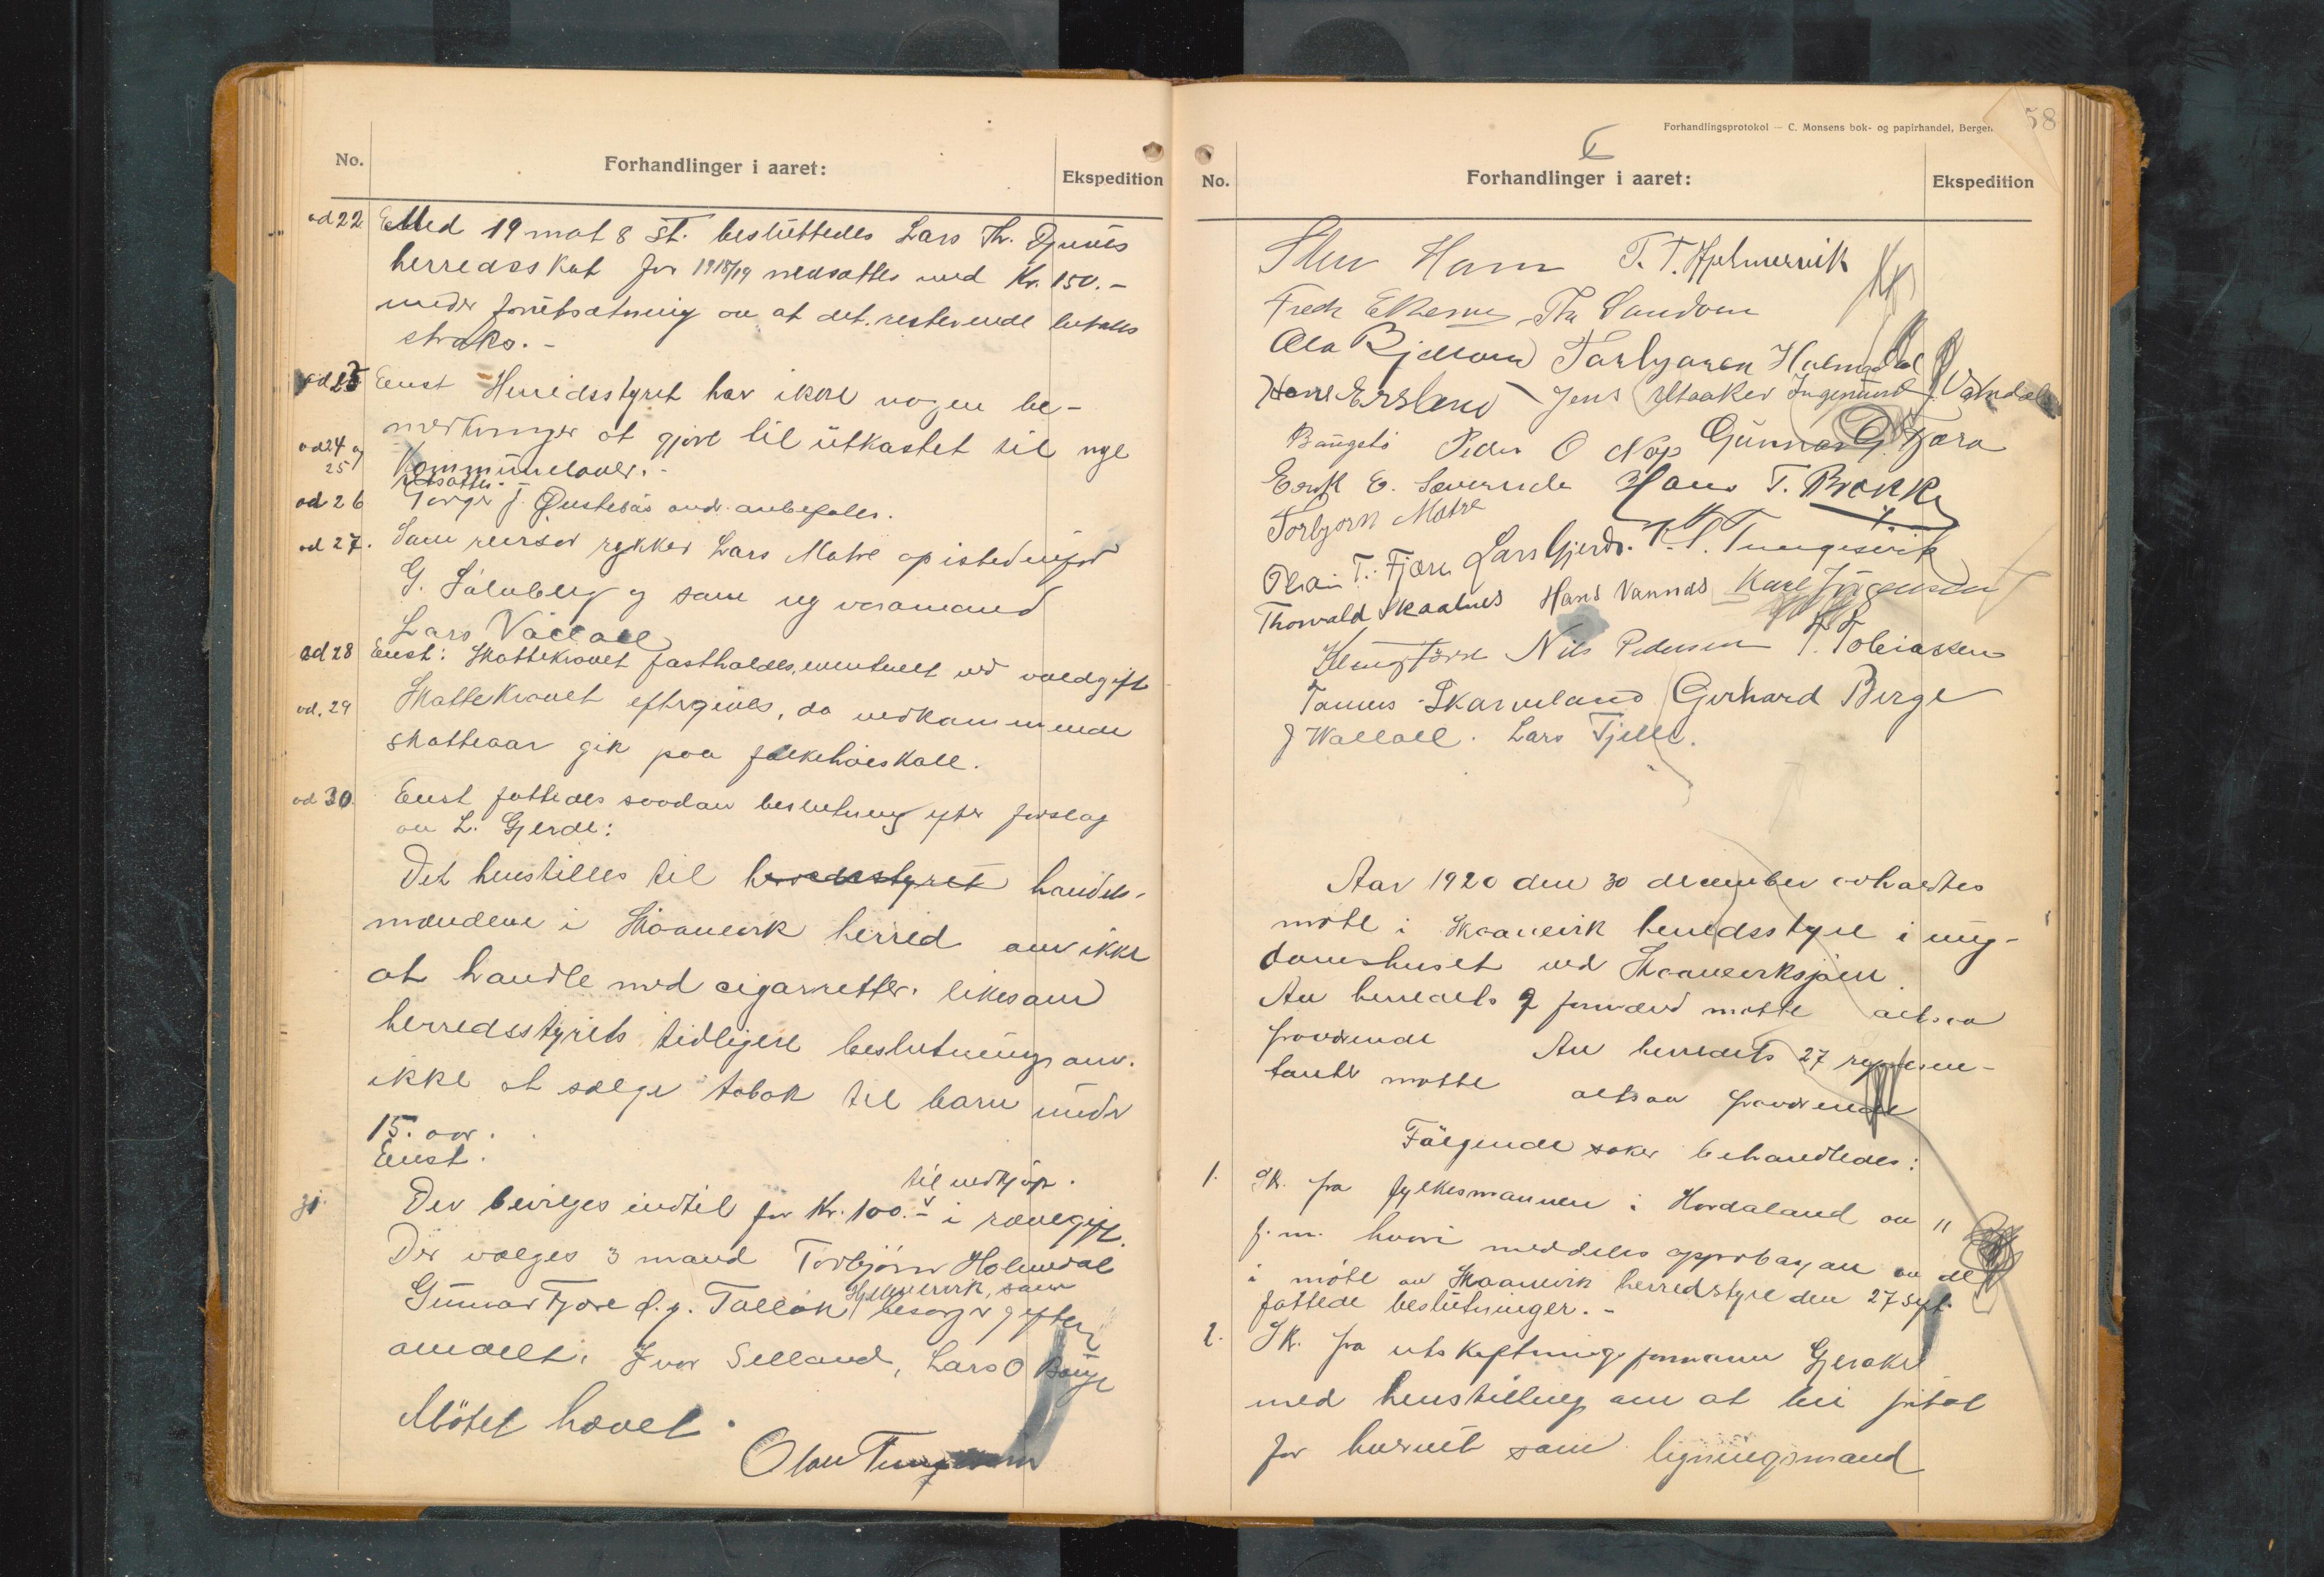 No.
Forhandlinger i aaret:
Ekspedition
ad 22 Med 19 mot 8 st. besluttedes Lars Th. Djuvis
herredsskat for 1918/19 nedsattes med Kr. 150.-
under forutsætning av at det resterende betales
straks.-
ad 23 Enst Herredsstyret har ikke nogen be-
merkninger at gjøre til utkastet til nye
ad 24 og
25
Kommunelover.-
utsattes.-
ad 26 Torger J. Øustebøs andr. anbefales.
ad 27. Som revisor rykker Lars Matre op istedenfor
G. Sølvberg og som ny varamand
Lars Valleall
ad 28 Enst: Skattekravet fastholdes, eventuelt ved voldgift
ad. 29 Skattekravet eftergives, da vedkommende
skatteaar gik paa folkehöiskole.
ad 30. Enst fattedes saadan beslutning efter forslag
av L. Gjerde:
Det henstilles til herredsstyret handels-
mændene i Skaanevik herred om ikke
at handle med cigarretter. likesom
herredsstyrets tidligere beslutning om.
ikke at sælge tobak til barn under
15. aar.
Enst.
til indkjöp.
31. Der bevilges indtil for Kr. 100.- i rævegift.
Der vælges 3 mand Torbjörn Holmedal
Gunnar Fjære d.y. Tallak Hjelmervik, som
besorger giften
anvendt. Ivar Selland, Lars O Bauge
Mötet hævet.
Olav Tungesvik
Forhandlingsprotokol — C. Monsens bok- og papirhandel, Bergen
58
No.
Forhandlinger i aaret:
Ekspedition
Sten Ham T. T. Hjelmervik
Fredr Ekhem Th Sandven
Ola Bjelland Torbjørn Holmedal
Hans Ersland Jens Utaaker Ingemund J. Vatndal
Bauge Peder O Nap Gunnar G. Fjæra
Enok E. Severeide Hans T. Brekke
Torbjorn Matre
Olai T. Fjære Lars Gjerde. K. T. Tungesvik
Thorvald Skaalnes Hans Vannes Karl Jörgensen
Nils Pedersen T. Tobiassen
Tönnes Skarveland Gerhard Berge
J Walleall. Lars Fjelle.
Aar 1920 den 30 december avholdtes
møte i Skaanevik herredsstyre i ung-
domshuset ved Skaaneviksjøen
Av herredets 9 formænd møtte altsaa
fraværende Av herredets 27 represen-
tanter møtte altsaa fraværende
Fölgende saker behandledes:
1. Sk. fra fylkesmannen i Hordaland av 11
f.m. hvori meddeles approbasjon av de
i møte av Skaanevik herredstyre den 27 Sept.
fattede beslutninger.-
2. Sk. fra utskiftningsformann Gjerake
med henstilling om at bli fritat
for hvervet som ligningsmand